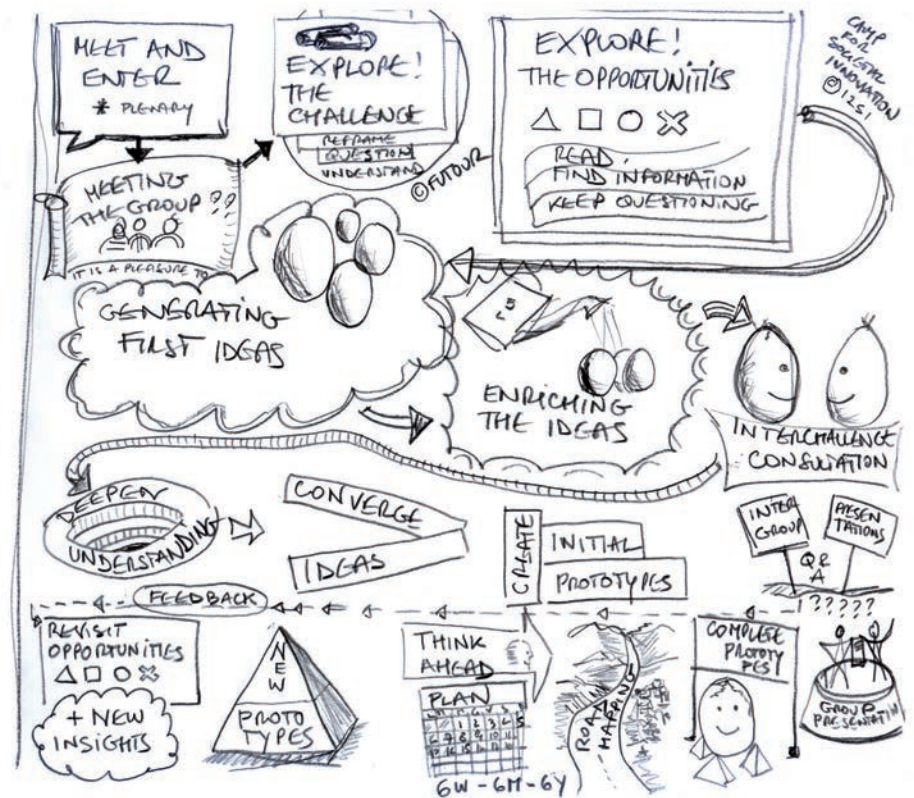 MEET AND
ENTER
* PLENARY
EXPLORE!
THE
CHALLENGE
REFRAME
QUESTION
UNDERSTAND
© FUTOUR
EXPLORE!
THE OPPORTUNITIES
READ
FIND INFORMATION
KEEP QUESTIONING
CAMP
FOR
SOCIETAL
INNOVATION
© I2SI
MEETING
THE GROUP ??
IT IS A PLEASURE TO
GENERATING
FIRST IDEAS
ENRICHING
THE IDEAS
INTERCHALLENGE
CONSULTATION
DEEPEN
UNDERSTANDING
CONVERGE
IDEAS
CREATE
INITIAL
PROTOTYPES
INTER
GROUP
PRESEN
TATIONS
Q&
A
FEEDBACK
?????
REVISIT
OPPORTUNITIES
+ NEW
INSIGHTS
NEW
PROTO
TYPES
THINK
AHEAD
PLAN
6W - 6M - 6Y
ROAD
MAPPING
COMPLETE
PROTOTY
PES
GROUP
PRESENTATION